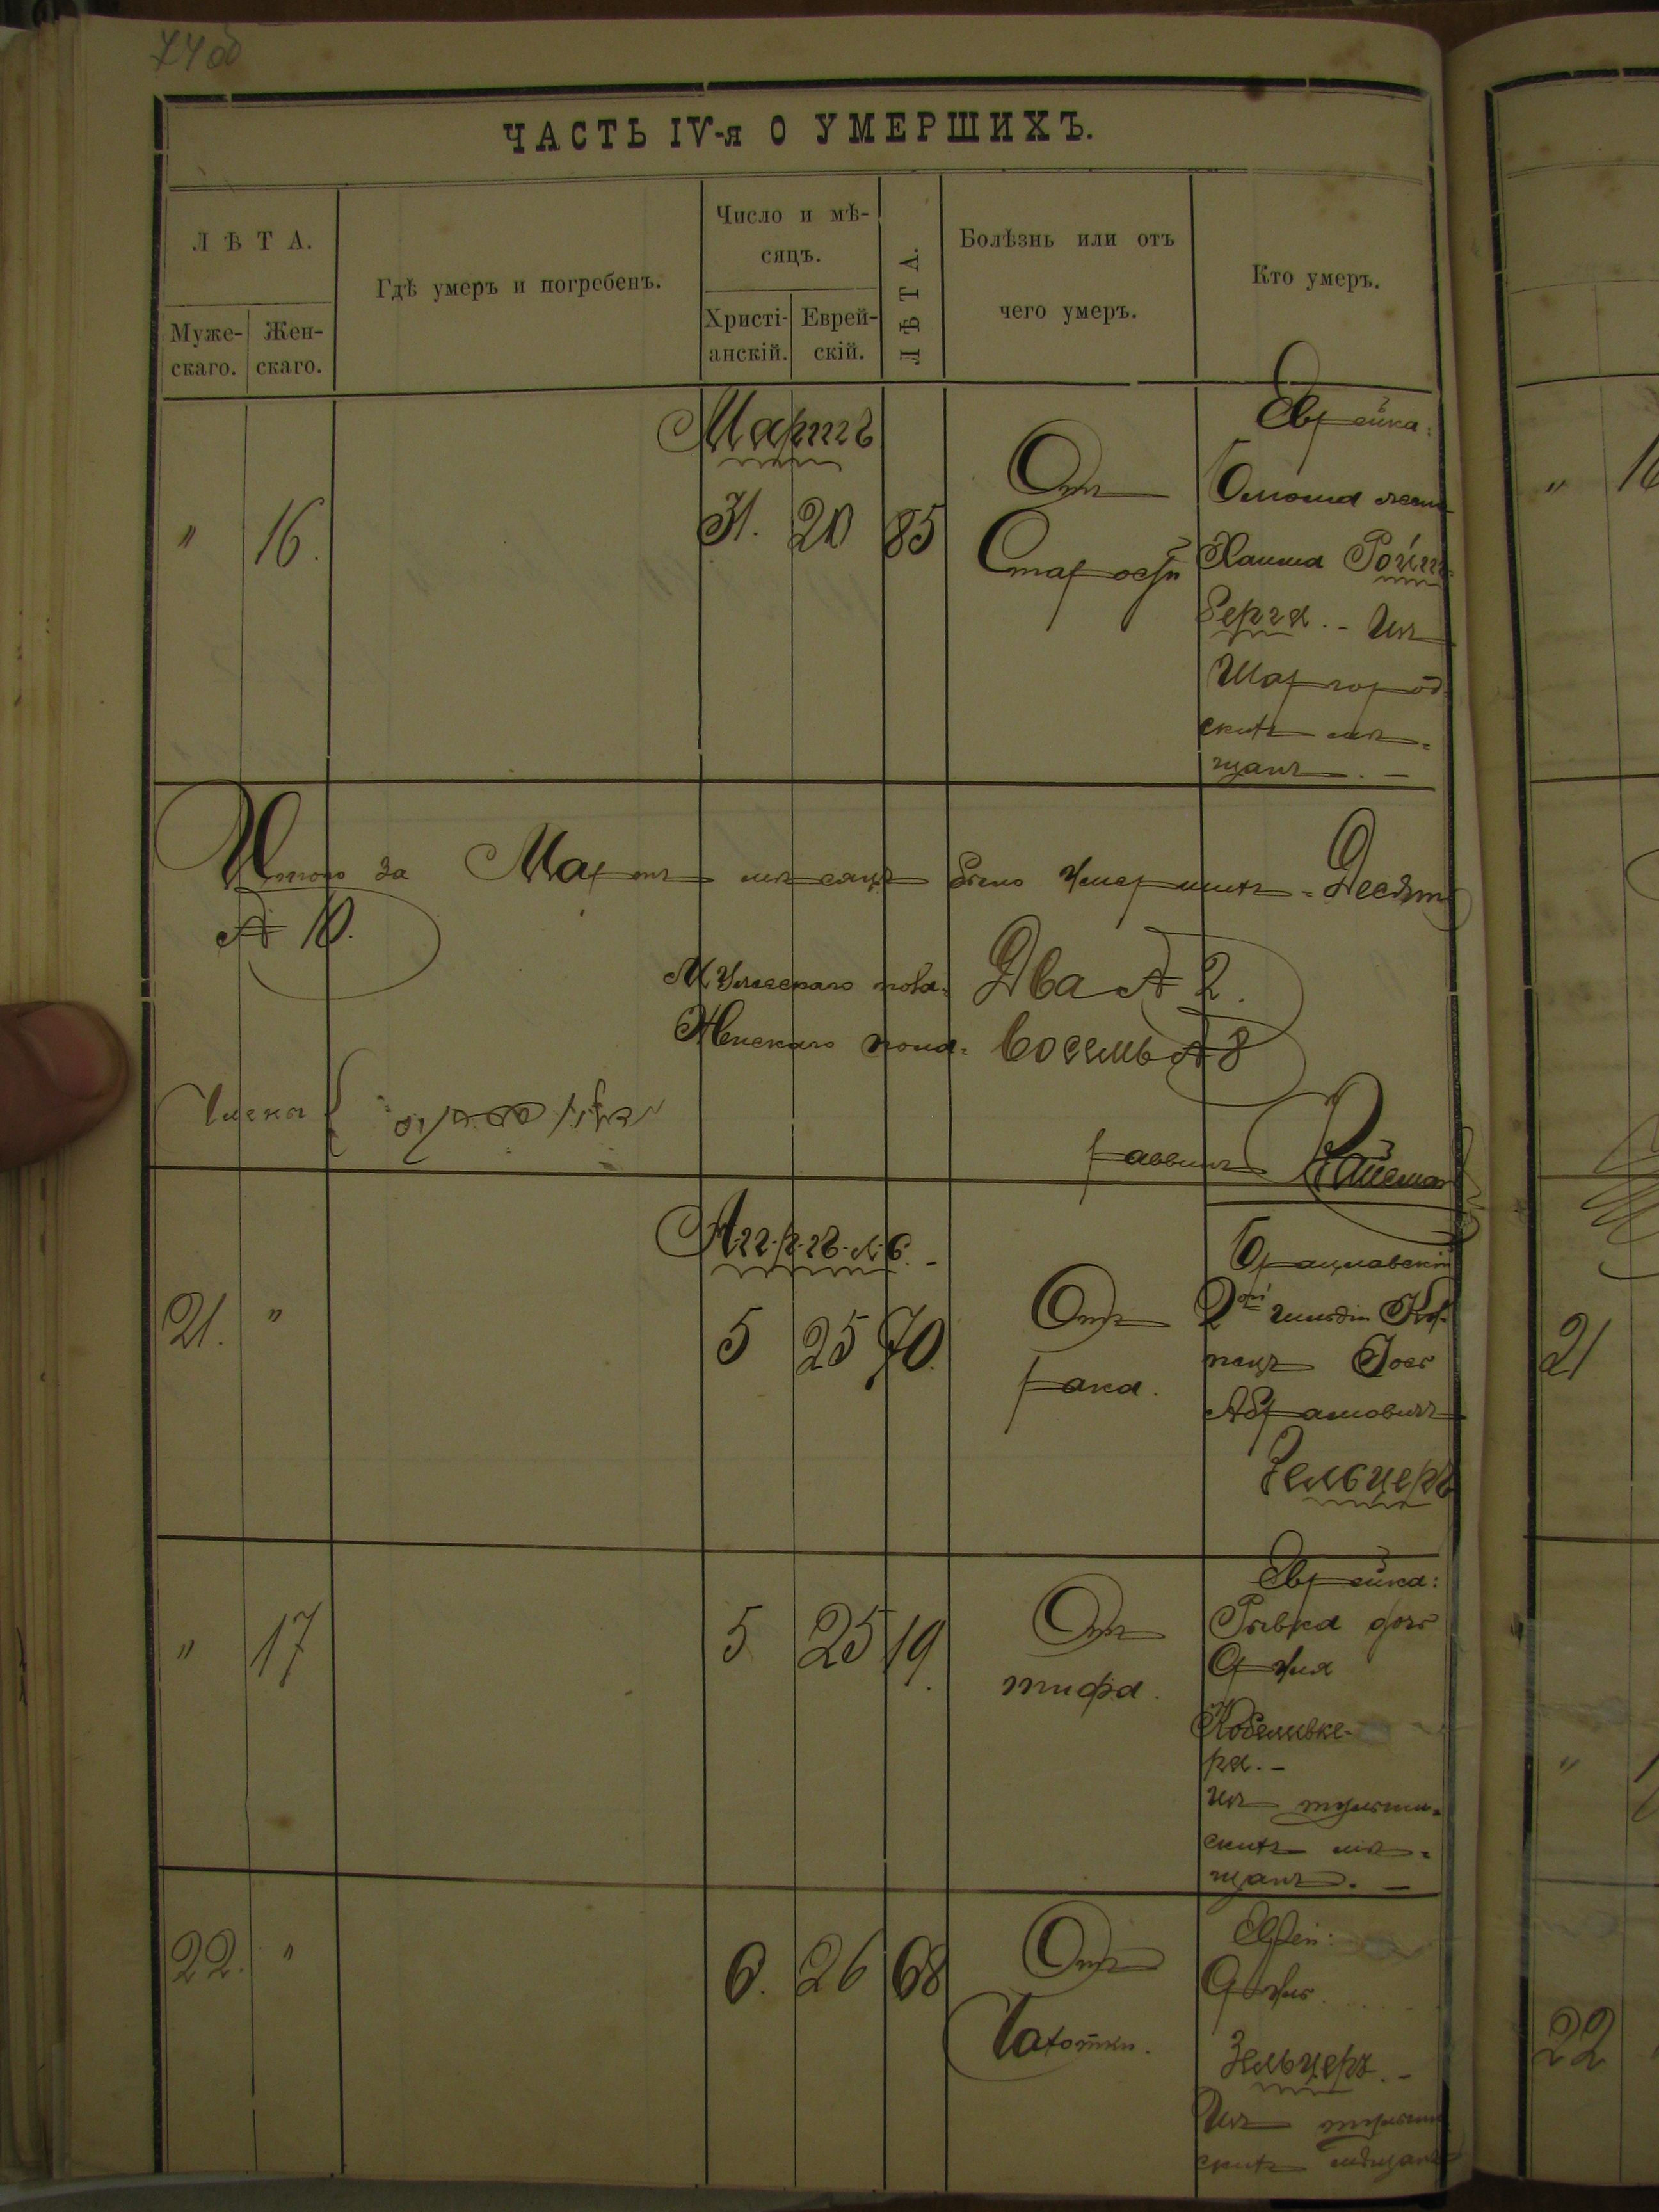 74об
ЧАСТЬ IV-я О УМЕРШИХЪ.
ЛѢТА.
Муже-
скаго.
Жен-
скаго.
Гдѣ умеръ и погребенъ.
Число и мѣ-
сяцъ.
Христі-
анскій.
Еврей-
скій.
ЛѢТА.
Болѣзнь или отъ
чего умеръ.
Кто умеръ.
Мартъ
" 16. 31. 20 85
Отъ
Старости
Еврейка:
Хаима Ройт-
берга. - Изъ
Шаргород-
скихъ мѣ-
щанъ. -
Итого за Мартъ мѣсяцъ было умершихъ = Десять
№ 10.
Мужескаго пола = Два № 2.
Женскаго пола = Восемь № 8
Члены
Раввинъ
Апрѣль. -
21. " 5 25 70.
Отъ
рака.
Брацлавскій
2ой гильдіи Ку-
пецъ Іось
Абрамовичъ
Зельцеръ
" 17 5 25 19.
Отъ
тифа.
Еврейка:
Рывка дочь
Сруля
ра. -
изъ тульчин-
скихъ мѣ-
щанъ. -
22. " 6. 26 68
Отъ
Чахотки.
Еврей:
Сруль
Зельцеръ. -
Изъ тульчин
скихъ мѣщанъ
" 16
21
"
22